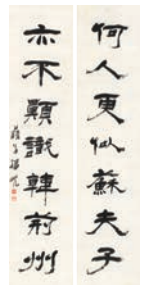 何人更似蘇夫子
亦不願識韓荊州